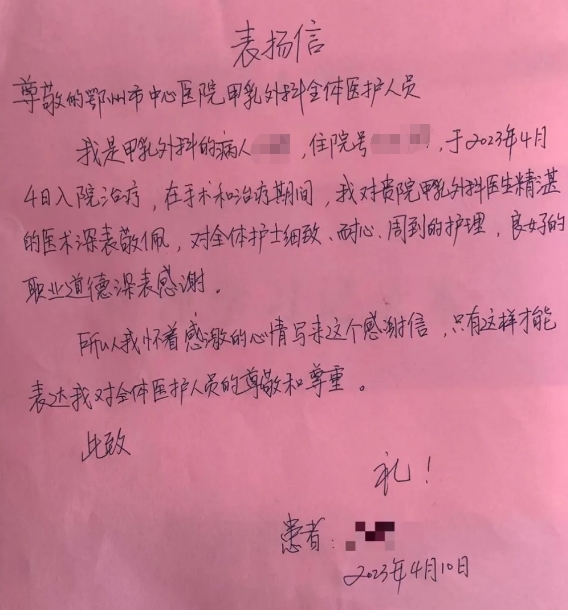 表扬信
尊敬的鄂州市中心医院甲乳外科全体医护人员
我是甲乳外科的病人 ,住院号 ,于2023年4月
4日入院治疗,在手术和治疗期间,我对贵院甲乳外科医生精湛
的医术深表敬佩,对全体护士细致、耐心、周到的护理,良好的
职业道德深表感谢。
所以我怀着感激的心情写来这个感谢信,只有这样才能
表达我对全体医护人员的尊敬和尊重。
此致
礼!
患者:
2023年4月10日